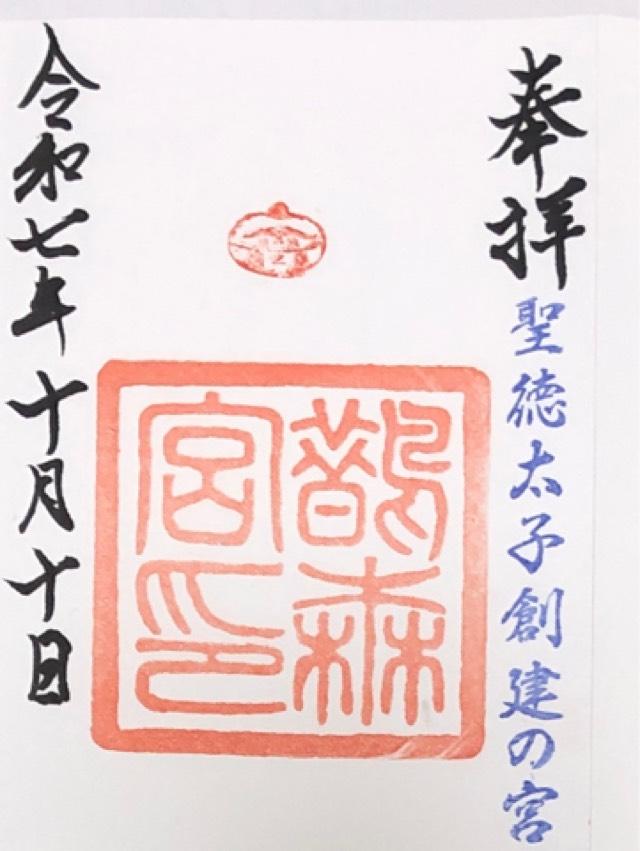 奉拝
聖徳太子創建の宮
鵲森
宮印
令和七年十月十日